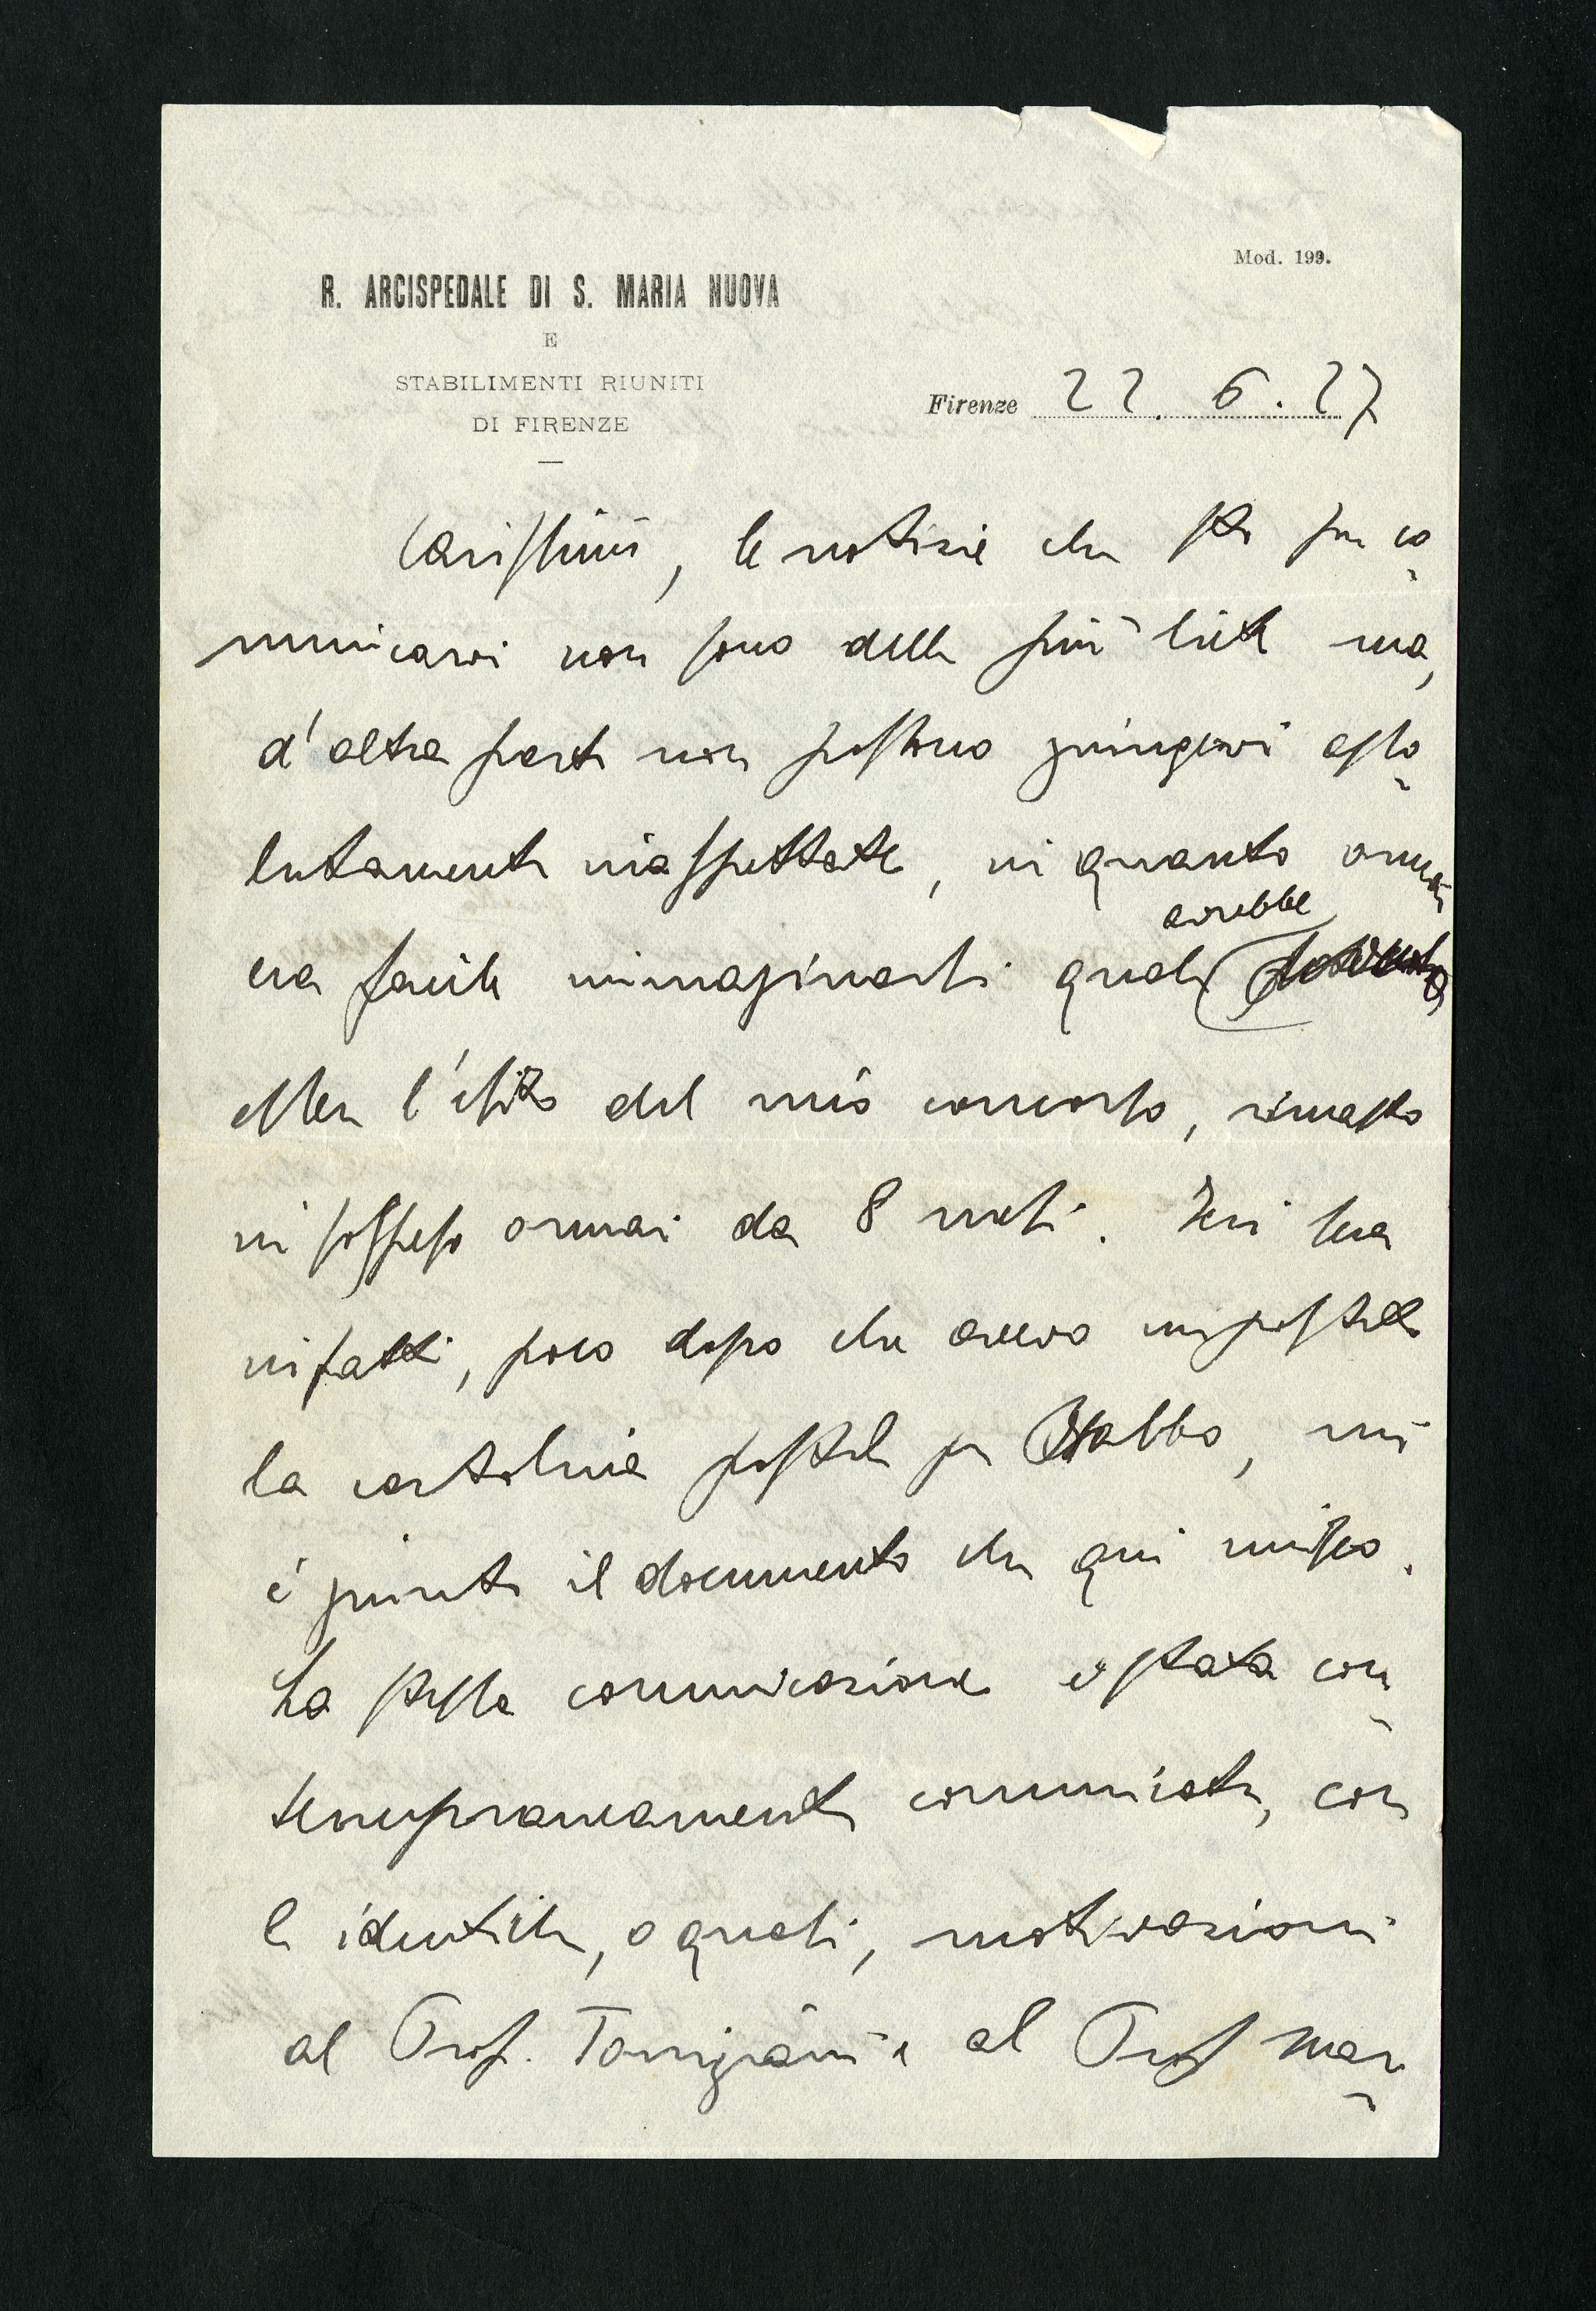 Mod. 199.
R. ARCISPEDALE DI S. MARIA NUOVA
E
STABILIMENTI RIUNITI
DI FIRENZE
Firenze 22. 6. 27
Carissimi, le notizie che sto per co
municarvi non sono delle più liete ma,
d'altra parte non possono giungervi asso
lutamente inaspettate, in quanto ormai
avrebbe
era facile immaginarsi quale
esser l'esito del mio concorso, rimasto
in sospeso ormai da 8 mesi. Ieri sera
infatti, poco dopo che avevo impostato
la cartolina postale per Babbo, mi
è giunto il documento che qui unisco.
La stessa comunicazione è stata con
temporaneamente comunicata, con
le identiche, o quasi, motivazioni
al Prof. Torrigiani e al Prof Mar